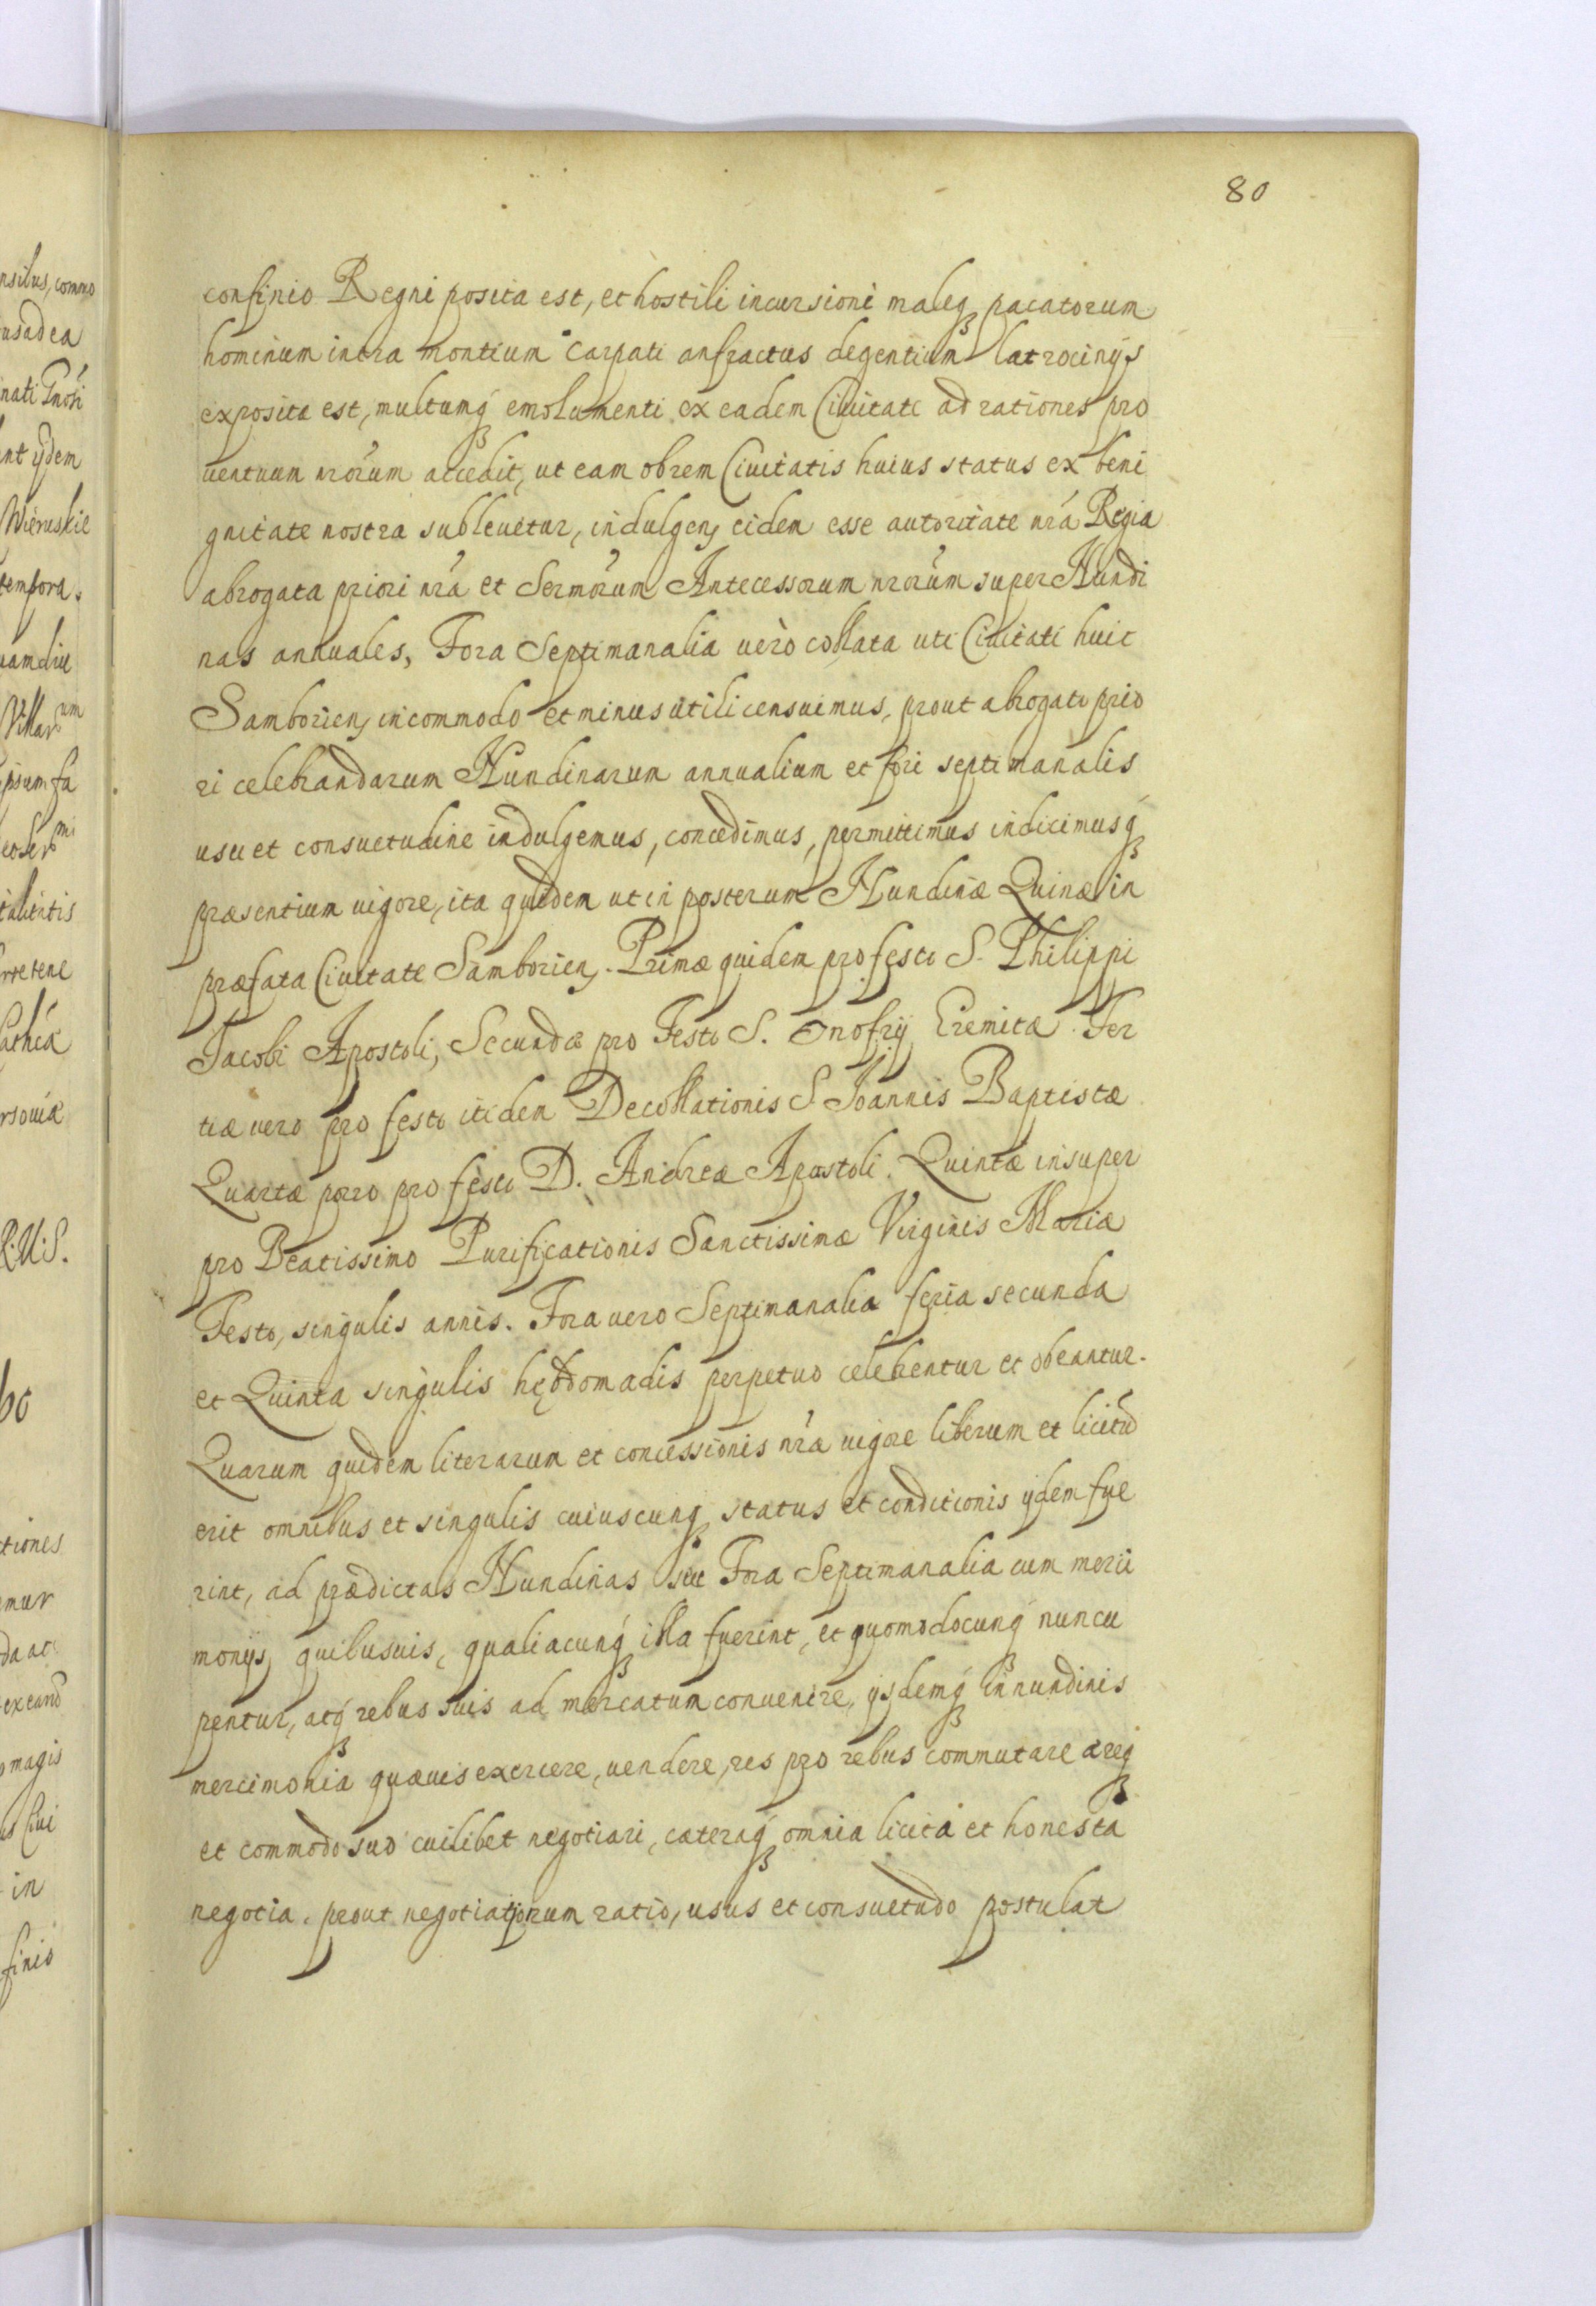 80
confinio Regni posita est, et hostili incursioni maleq pacatorum
hominum intra montium Carpati anfractus degentium latrocinijs
exposita est, multumq emolumenti ex eadem Ciuitate ad rationes pro
uentuum nrorum accedit, ut eam obrem Ciuitatis huius status ex beni
gnitate nostra subleuetur, indulgen eidem esse autoritate nra Regia
abrogata priori nra et Sermorum Antecessorum nrorum super Nundi
nas annuales, Fora Septimanalia uero collata uti Ciuitati huic
Samborien incommodo et minus utili censuimus, prout abrogato prio
ri celebrandarum Nundinarum annualium et fori septimanalis
usu et consuetudine indulgemus, concedimus, permittimus indicimusq
præsentium uigore, ita quidem ut in posterum Nundinæ Quinæ in
præfata Ciuitate Samborien. Primæ quidem pro festo S. Philippi
Jacobi Apostoli, Secundæ pro Festo S. Onofrij Eremitæ. Ter
tiæ uero pro festo itidem Decollationis S. Joannis Baptistæ
Quartæ porro pro festo D. Andreæ Apostoli. Quintæ insuper
pro Beatissimo Purificationis Sanctissimæ Virginis Mariæ
Festo, singulis annis. Fora uero Septimanalia feria secunda
et Quinta singulis hębdomadis perpetuo celebentur et obeantur.
Quarum quidem literarum et concessionis nræ uigore liberum et licitū
erit omnibus et singulis cuiuscunq status et conditionis ijdem fue
rint, ad prædictas Nundinas siue Fora Septimanalia cum merci
monijs quibusuis, qualiacunq illa fuerint, et quomodocunq nuncu
pentur, atq rebus suis ad mercatum conuenire, ijsdemq in nundinis
mercimonia quæuis exercere, uendere, res pro rebus commutare areq
et commodo suo cuilibet negotiari, cæteraq omnia licita et honesta
negotia, prout negotiationum ratio, usus et consuetudo postulat